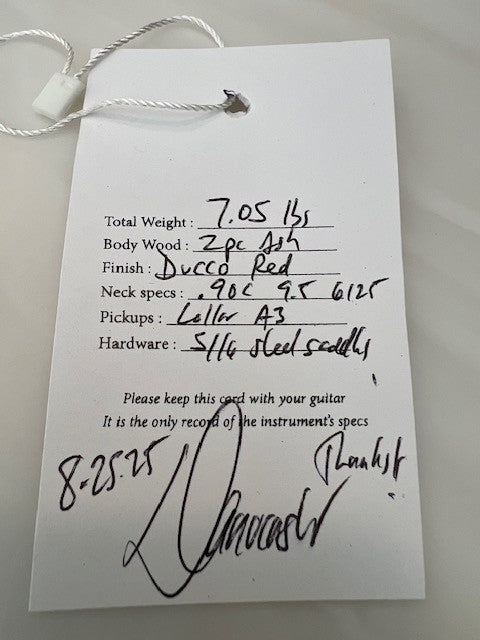 Total Weight : 7.05 lbs
Body Wood : 2pc Ash
Finish : Ducco Red
Neck specs : .90C 9.5 6125
Pickups : Lollar A3
Hardware : 5/16 steel saddles
Please keep this card with your guitar
It is the only record of the instrument's specs
8-25-25
Thanks!
Danocaster